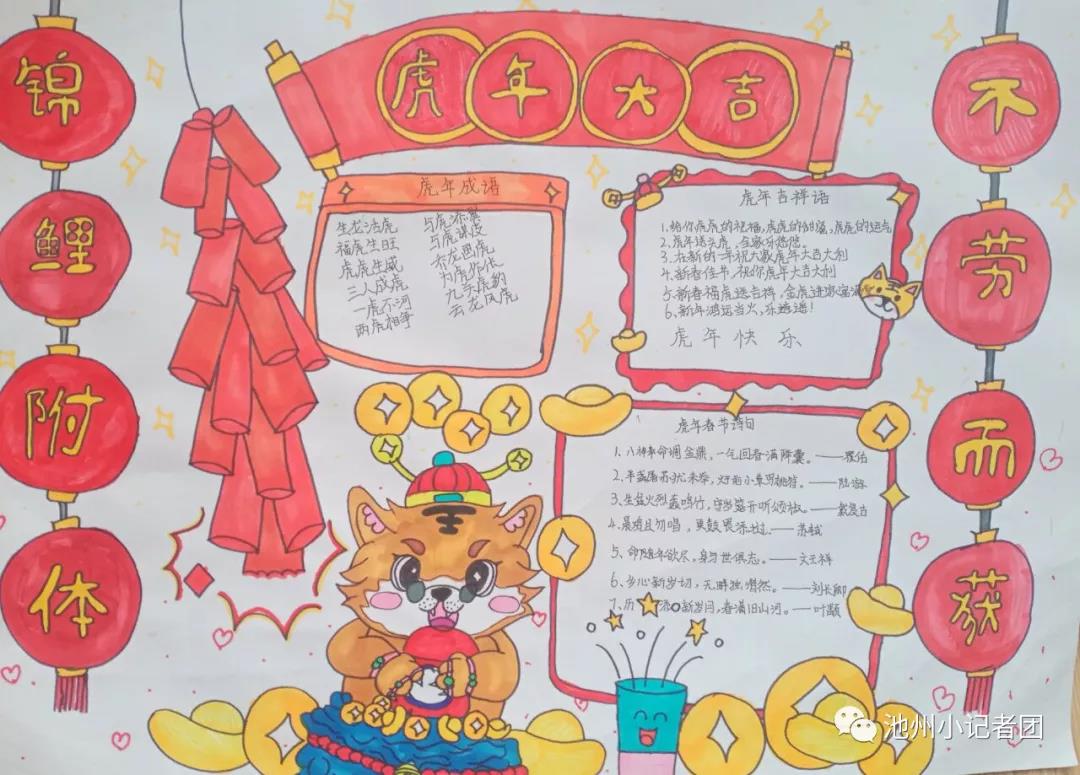 虎年大吉
锦鲤附体
不劳而获
虎年成语
生龙活虎
福虎生旺
虎虎生威
三人成虎
一虎不河
两虎相争
与虎添翼
与虎谋皮
画虎
为虎
九牛虎豹
云龙风虎
虎年吉祥语
1.给你虎虎的祝福,虎虎的甜蜜,虎虎的运气
2.虎年送头虎,全家乐悠悠。
3.在新的一年祝大家虎年大吉大利
4.新春佳节,祝你虎年大吉大利
5.新春福虎送吉祥,金虎进家富满
6.新年鸿运当火,乐逍遥!
虎年快乐
虎年春节诗句
1、八神奉命调金鼎,一气回春满降囊。——瞿佑
2.半盏屠苏犹未举,灯前小草写桃符。——陆游
3、生盆火烈轰鸣竹,守岁筵开听颂椒。——戴复古
4、晨鸡且勿唱,更鼓畏添挝——苏轼
5、命随年欲尽,身与世俱忘。——文天祥
6、乡心新岁切,天畔独潸然。——刘长卿
7、历 添新岁月,春满旧山河。——叶颙
池州小记者团